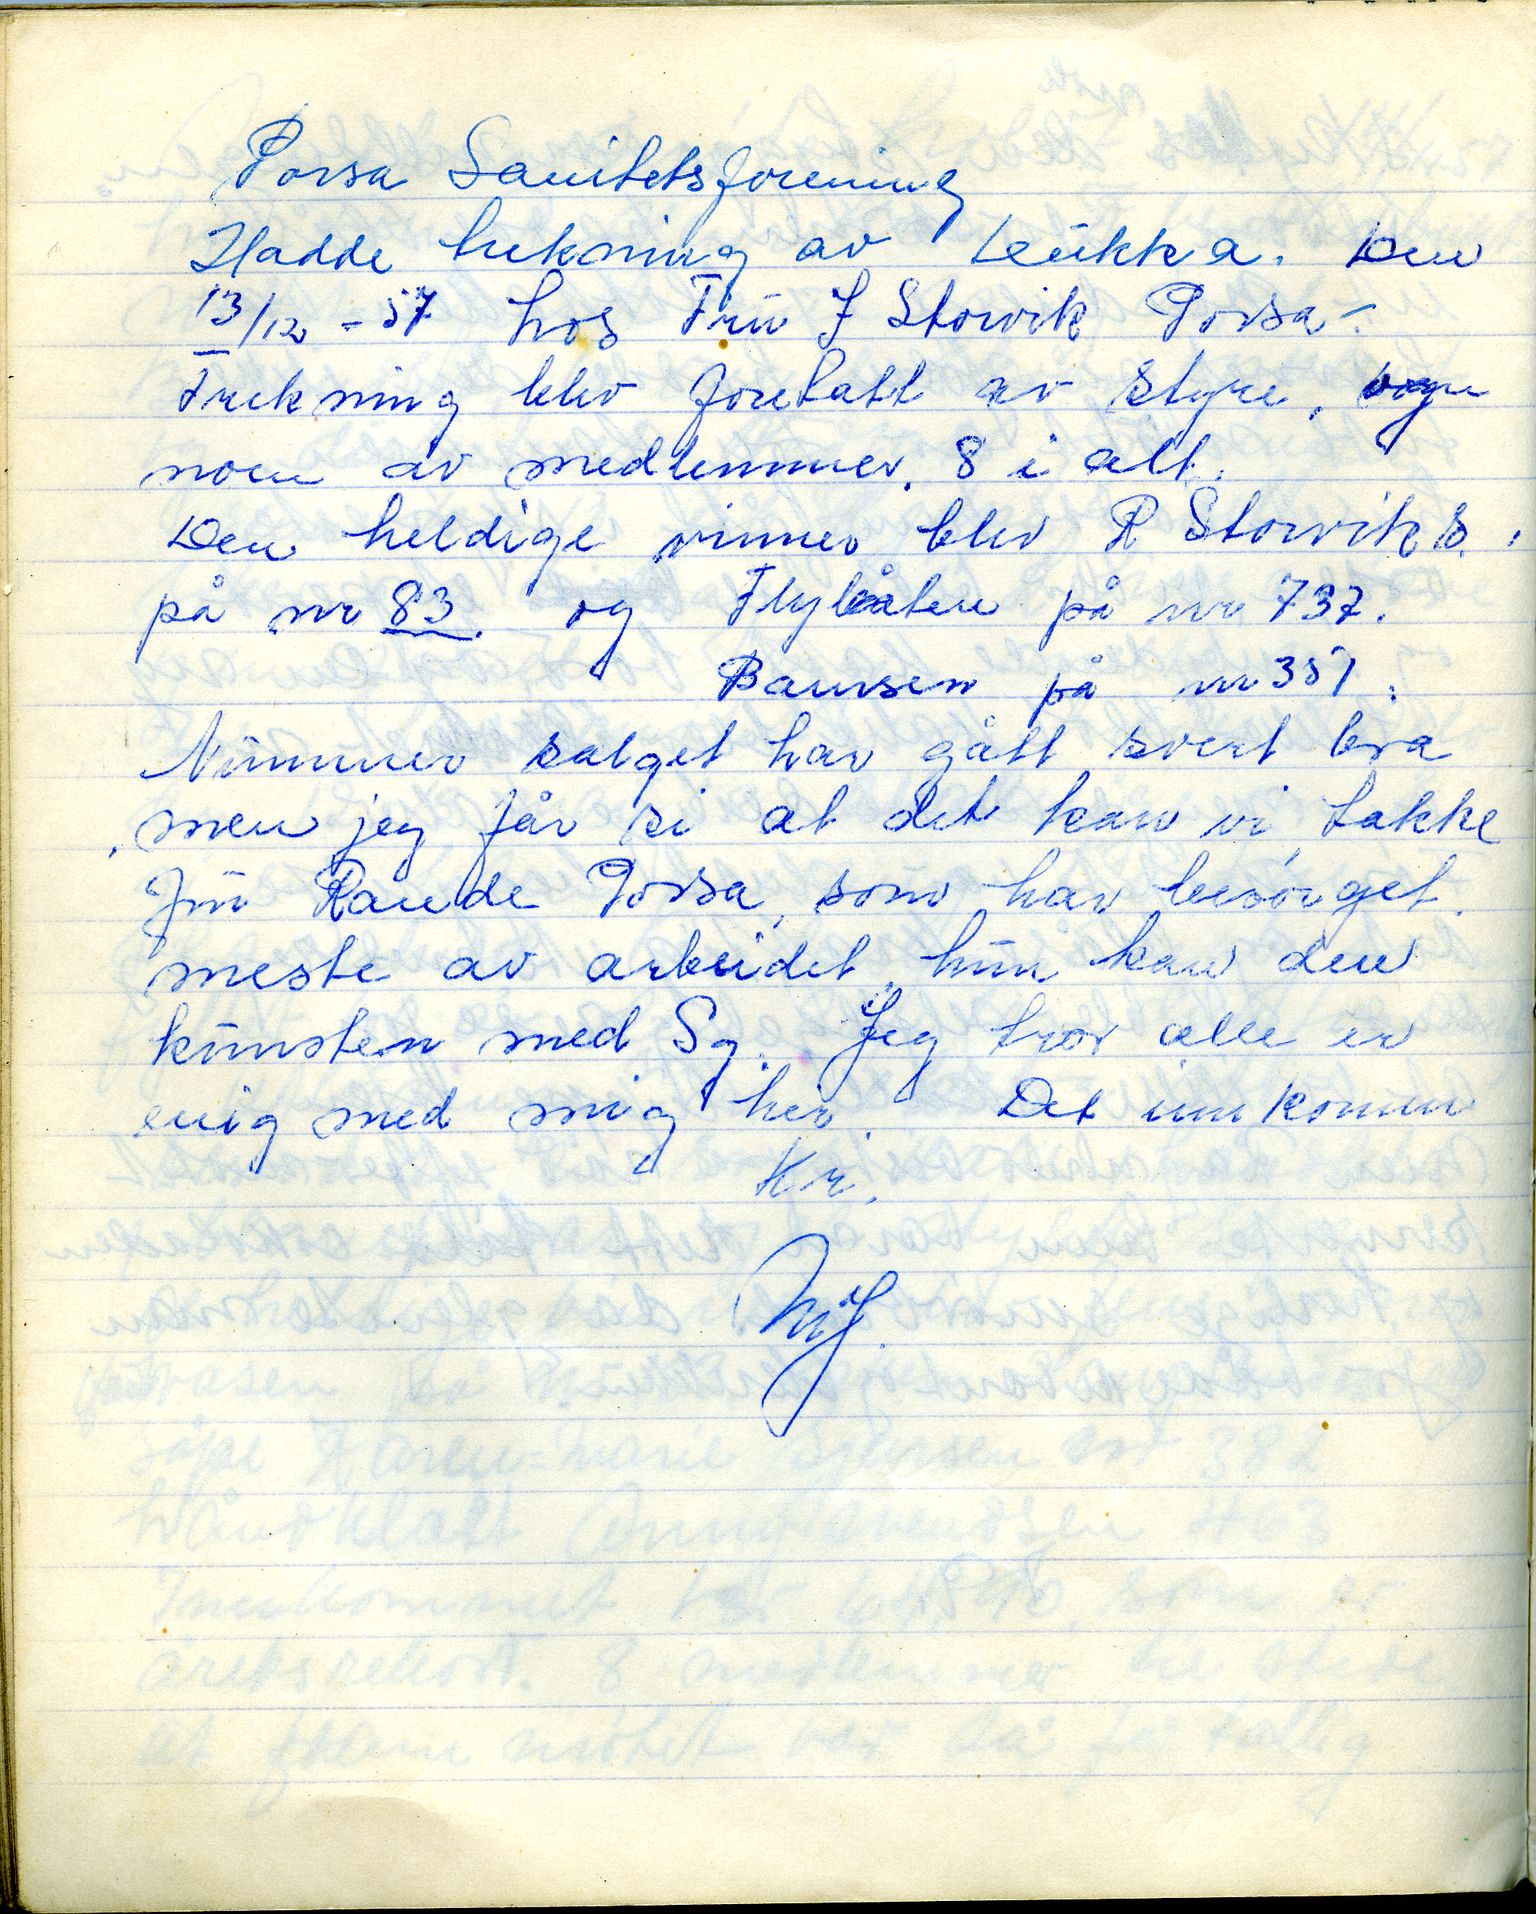 Porsa Sanitetsforening
Hadde trekning av Leükka. Den
13/12 - 57 hos Frü J Storvik Porsa -
Trekning blev foretatt av styre, og
noen av medlemmer. 8 i alt.
Den heldige vinner blev R Storvik s.
på nr 83. og Flybåten på nr 737.
på nr 357.
Nümmer salget har gått svert bra
men jeg får si at det kan vi takke
frü Rande Porsa, som har besørget
meste av arbeidet, hün kan den
künsten med Sg. Jeg tror alle er
enig med mig her. Det innkomm
Kr.